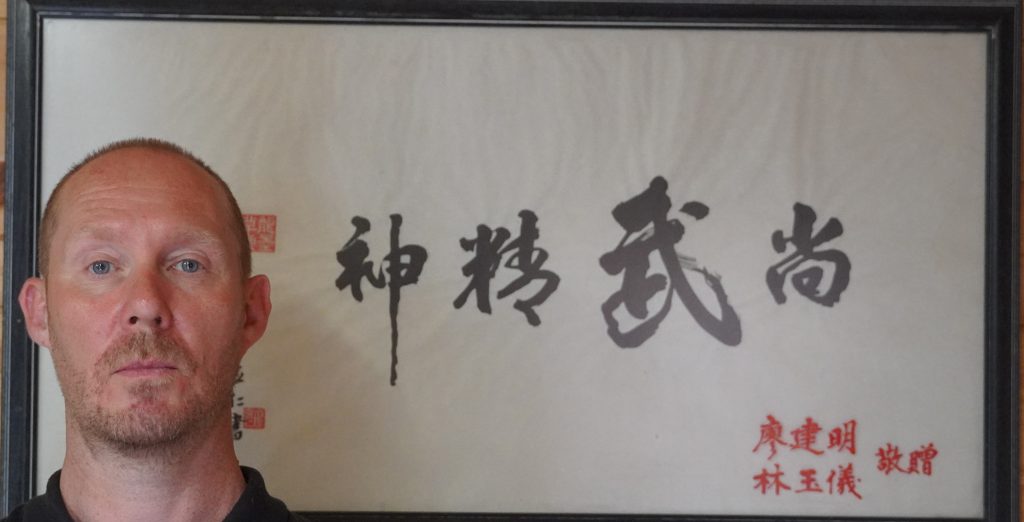 尚武精神
廖建明
林玉儀
敬贈